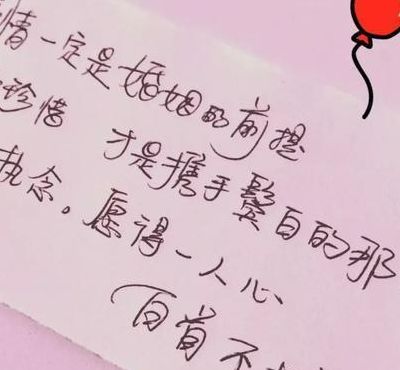 情一定是婚姻的前提
珍惜 才是携手鬓白的那
执念。愿得一人心
百首不